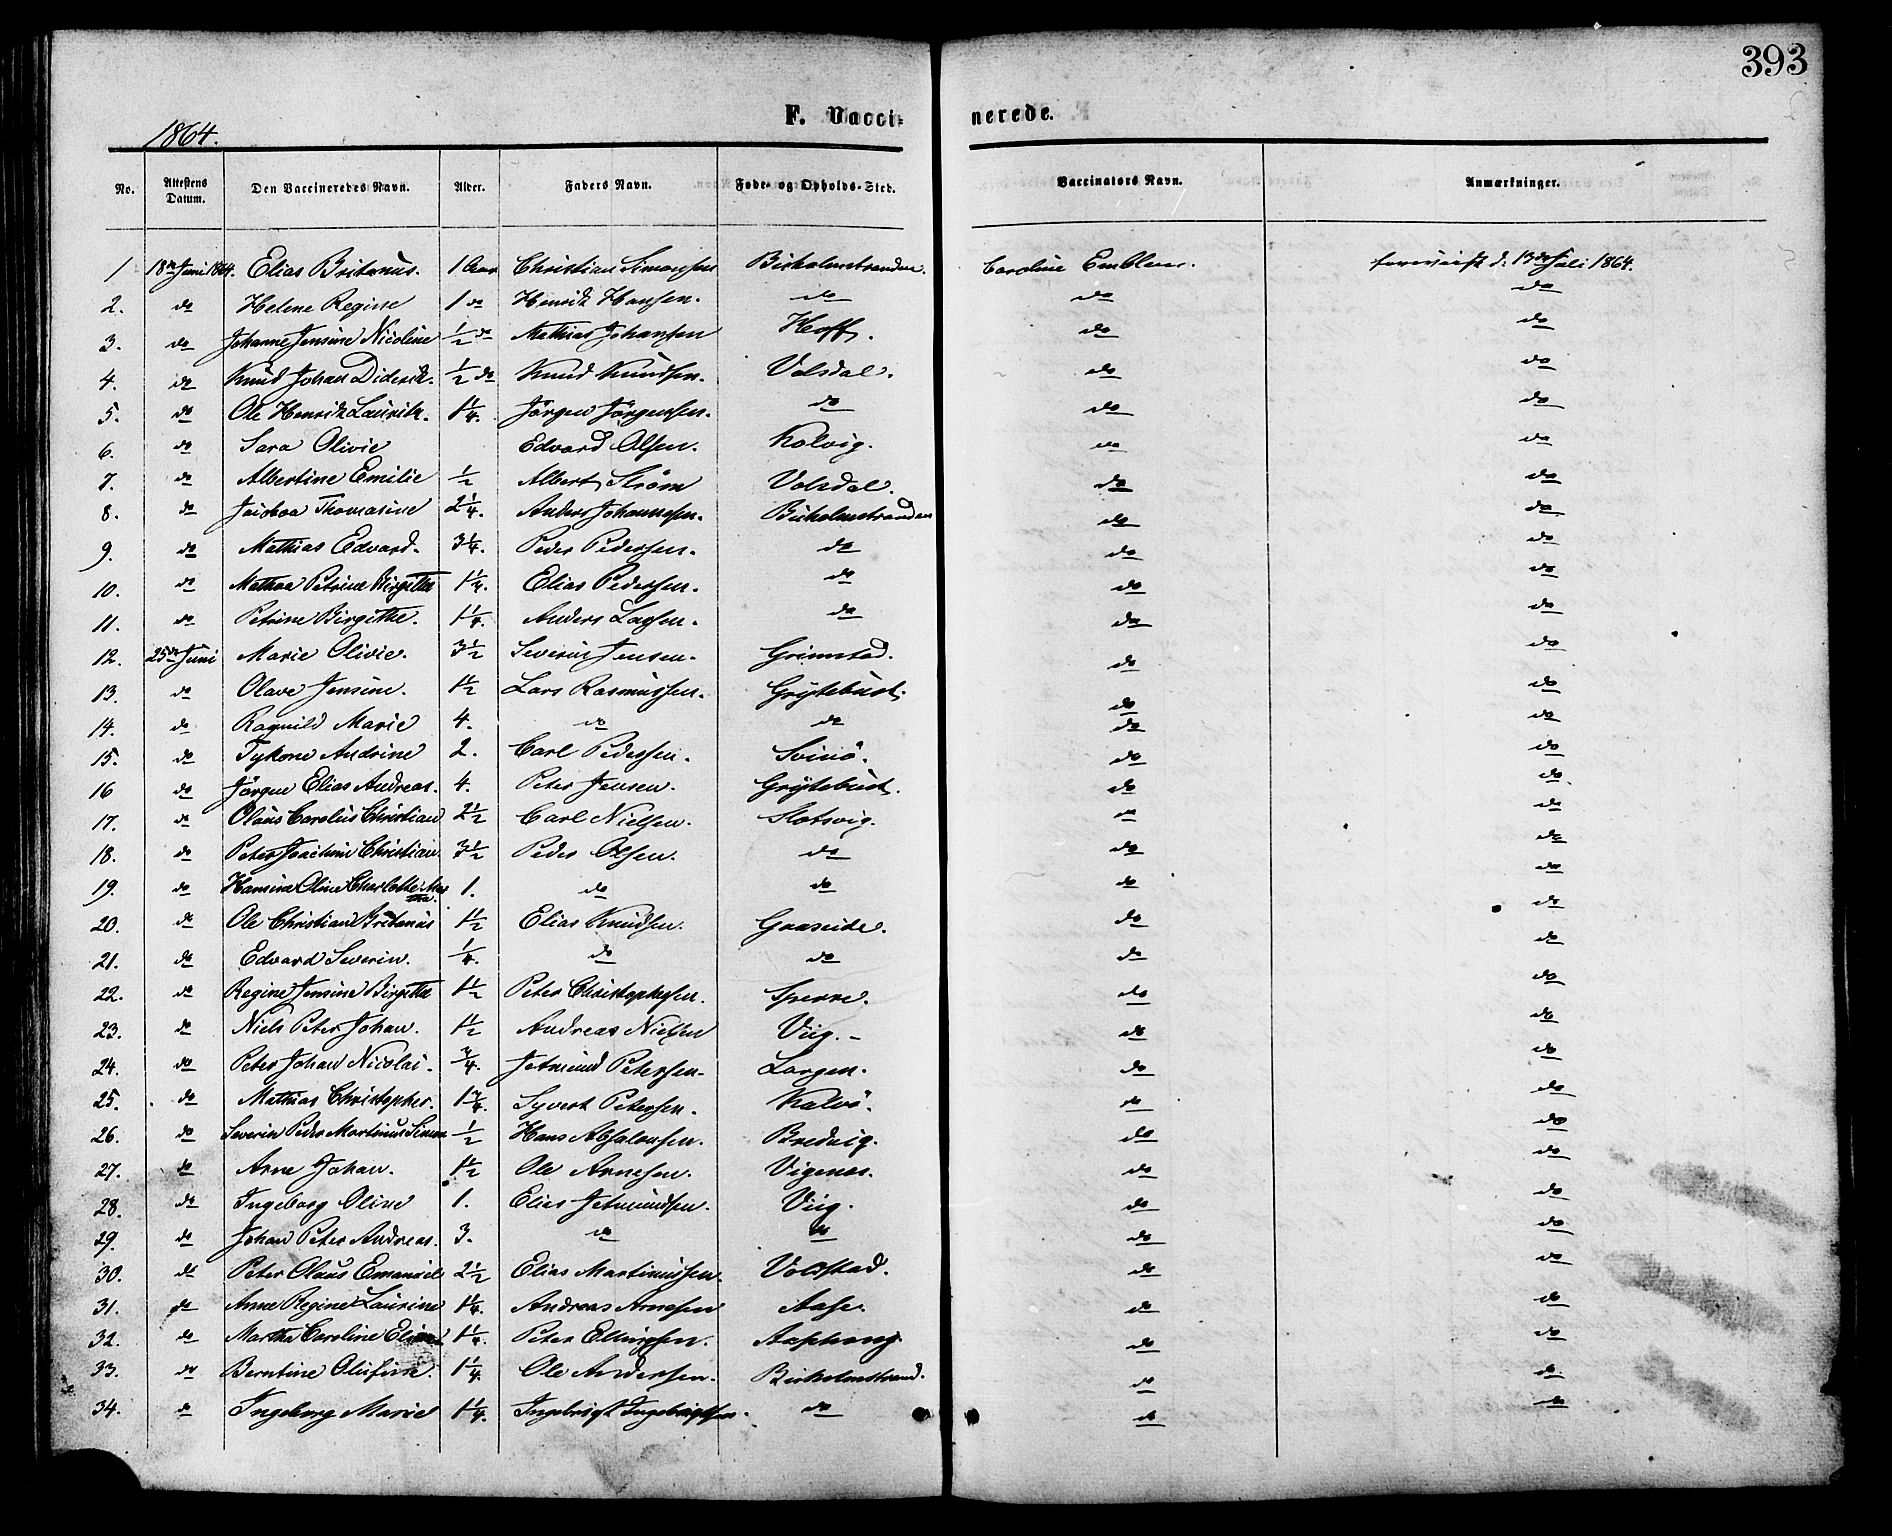 393
F. Vacci- nerede.
1864.
No. Attestens Datum. Den Vaccineredes Navn. Alder. Faders Navn. Føde- og Opholds-Sted. Vaccinators Navn. Anmærkninger.
1 18de Juni 1864. Elias Britanus. 1 Aar Christian Simonsen Birkolmstranden. Caroline Emblem. foreviist d. 13de Juli 1864.
2. do Helene Regine 1 do Henrik Hansen. do do do
3. do Johanne Jensine Nicoline 1/2 do Mathias Johansen Hoff. do do
4. do Knud Johan Diderik. 1/2 do Knud Knudsen. Volsdal. do do
5. do Ole Henrik Lauritz. 1 1/4. Jörgen Jörgensen. do do do
6. do Sara Olivie Edvard Olsen. Kolvig. do do
7. do Albertine Emilie 1/2 Albert Strøm Volsdal. do do
8. do Jacobea Thomasine 2 1/4. Anders Johannesen. Birkolmstranden do do
9. do Mathias Edvard. 3 1/4. Peder Pedersen. do do do
10. do Mathea Petrine Birgitte Elias Pedersen. do do do
11. do Petrine Birgithe. 1 1/4. Anders do do do
12. 25de Juni Marie Olivie. 3 1/2 Severin Jensen. Grimstad. do do
13. do Olave Jensine. 1 1/2 Lars Rasmussen. Grytebust. do do
14. do Ragnild Marie 4. do do do do
15. do Andrine 2. Carl Pedersen. Svinö. do do
16 do Jørgen Elias Andreas. 4. Peter Jensen. Grytebust. do do
17. do Olaus Carolus Christian 2 1/2 Carl Nielsen. Slotsvig. do do
18. do Peter Joachim Christian. 3 1/2 Peder Olsen. do do do
19. do Hansine Oline Charlotte 1. do do do do
20. do Ole Christian Britanus 1 1/2 Elias Knudsen. Gaaseide. do do
21. do Edvard Severin. 1/4. do do do do
22. do Regine Jensine Birgitte 1 1/2 Peter Christophersen. Sperre. do do
23. do Niels Peter Johan. 1 1/2 Andreas Nielsen Viig. - do do
24. do Peter Johan Nicolai. 3/4. Jetmund Petersen. Longen. do do
25. do Mathias Christopher. 1 3/4. Syvert Petersen. Kalvö. do do
26. do Severin Peder Martinus Simon 1/2 Hans Absalonsen. Bredvig. do do
27. do Arne Johan. 1 1/2 Ole Arnesen. Vigenes. do do
28. do Ingeborg Oline 1. Elias Jetmundsen. Viig. do do
29. do Johan Peter Andreas. 3. do do do
30. do Peter Olaus Emanuel 2 1/2 Elias Martinussen. Volstad. do do
31. do Anne Regine Laurine 1 1/4. Andreas Arnesen Aase. do do
32. do Martha Caroline 1 1/4. Peter Ellingsen. do do
33. do Berntine 1 1/4. Ole Andersen. Birkolmstrand. do do
34. do Ingeborg Marie 1 1/4. Ingebrigt Ingebrigtsen. do do do